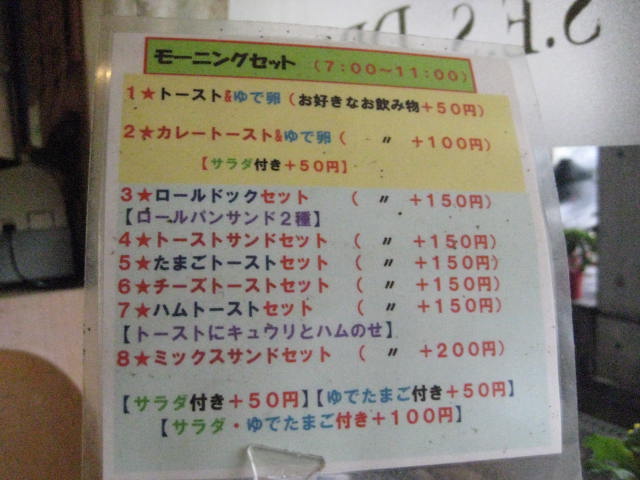 モーニングセット (7:00～11:00)
1★トースト&ゆで卵(お好きなお飲み物+50円)
2★カレートースト&ゆで卵( 〃 +100円)
【サラダ付き+50円】
3★ロールドックセット ( 〃 +150円)
【ロールパンサンド2種】
4★トーストサンドセット ( 〃 +150円)
5★たまごトーストセット ( 〃 +150円)
6★チーズトーストセット ( 〃 +150円)
7★ハムトーストセット ( 〃 +150円)
【トーストにキュウリとハムのせ】
8★ミックスサンドセット ( 〃 +200円)
【サラダ付き+50円】【ゆでたまご付き+50円】
【サラダ・ゆでたまご付き+100円】